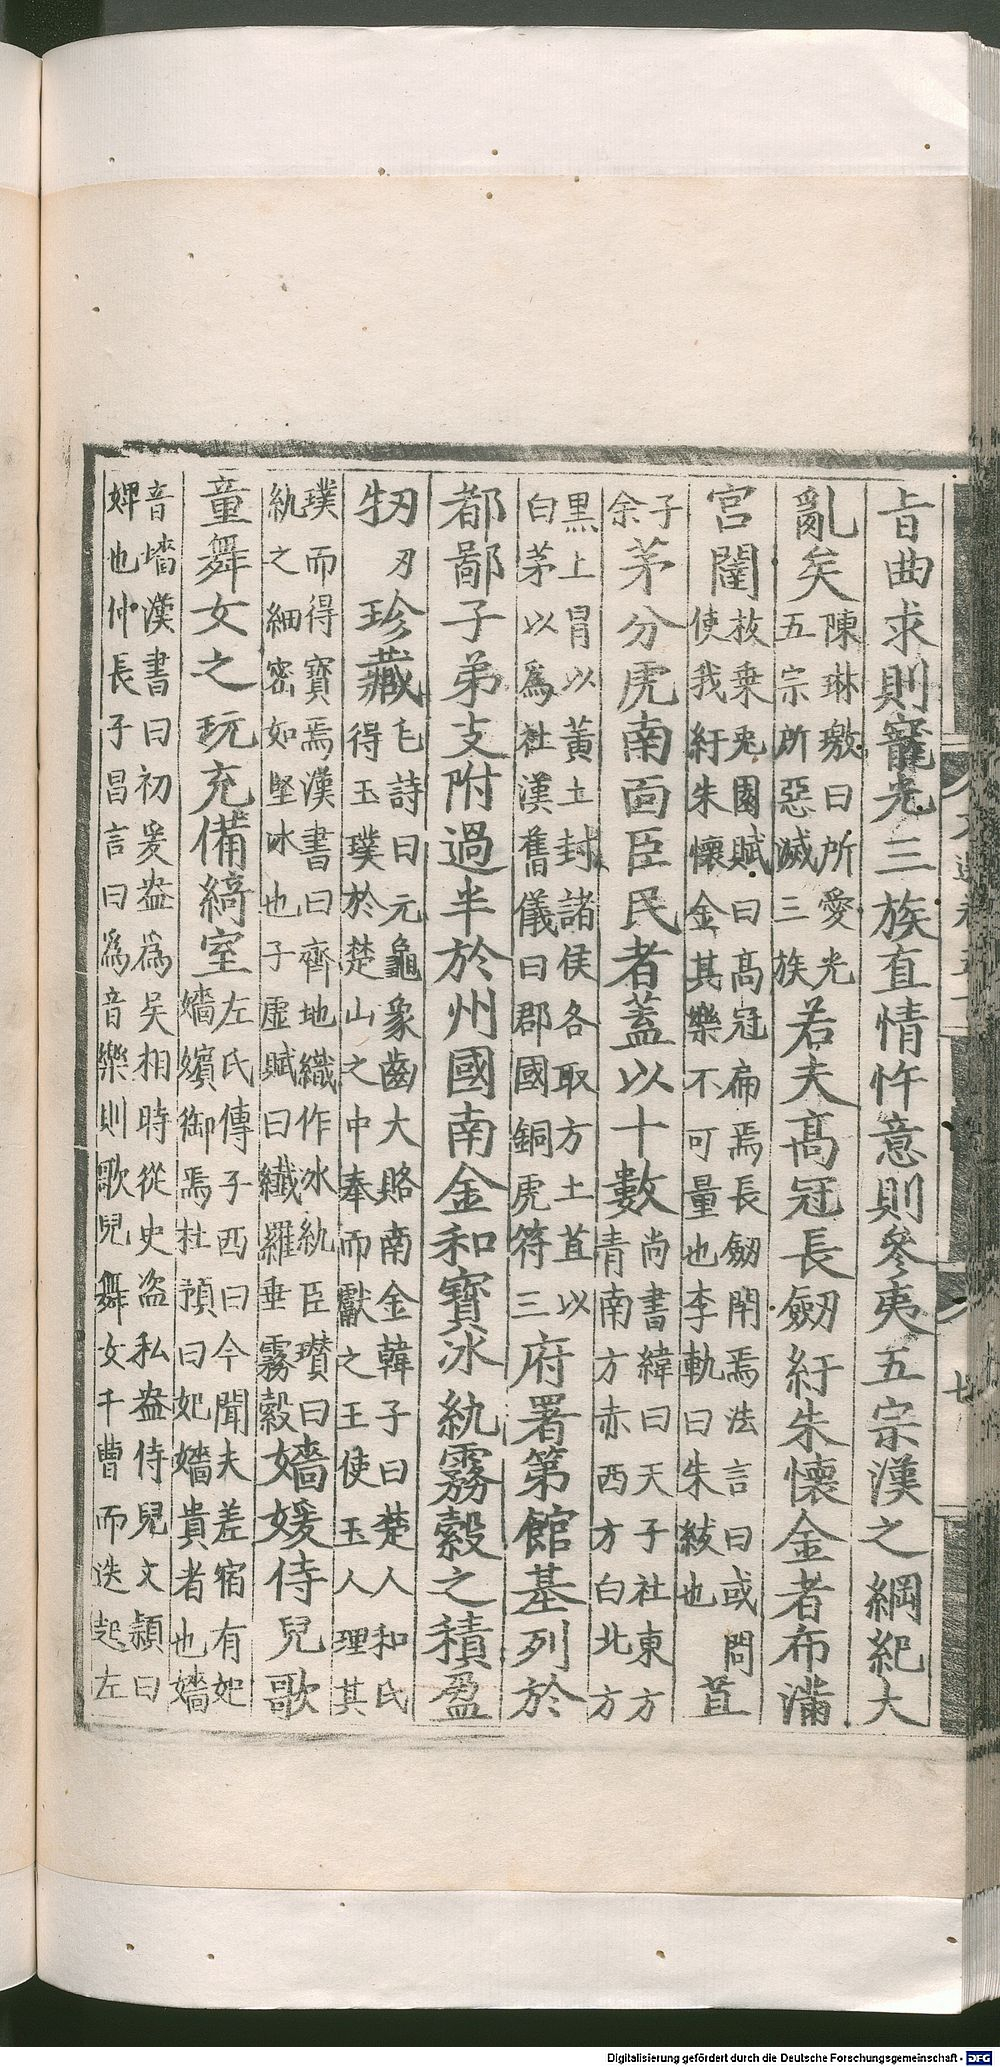 旨曲求則寵光三族直情忤意則叅夷五宗漢之綱紀大
亂矣陳琳檄曰所愛光五宗所惡滅三族若夫高冠長劒紆朱懷金者布滿
宮闈枚乗兎園賦曰高冠扁焉長劒閑焉法言曰或問使我紆朱懷金其樂不可量也李軌曰朱紱也苴
子余茅分虎南面臣民者蓋以十數尚書緯曰天子社東方青南方赤西方白北方
黑上冒以黃土封諸侯各取方土苴以白茅以爲社漢舊儀曰郡國銅虎符三府署第館基列於
都鄙子弟支附過半於州國南金和寶冰紈霧縠之積盈
牣刃珍藏毛詩曰元龜象齒大賂南金韓子曰楚人和氏得玉璞於楚山之中奉而獻之王使玉人理其
璞而得寶焉漢書曰齊地織作冰紈臣瓉曰紈之細密如堅冰也子虛賦曰纎羅垂霧縠嬙媛侍兒歌
童舞女之玩充備綺室左氏傳子西曰今聞夫差宿有妃嬙嬪御焉杜預曰妃嬙貴者也嬙
音墻漢書曰初爰盎爲吳相時從史盗私盎侍兒文穎曰婢也仲長子昌言曰爲音樂則歌兒舞女千曹而迭起左
Digitalisierung gefördert durch die Deutsche Forschungsgemeinschaft - DFG